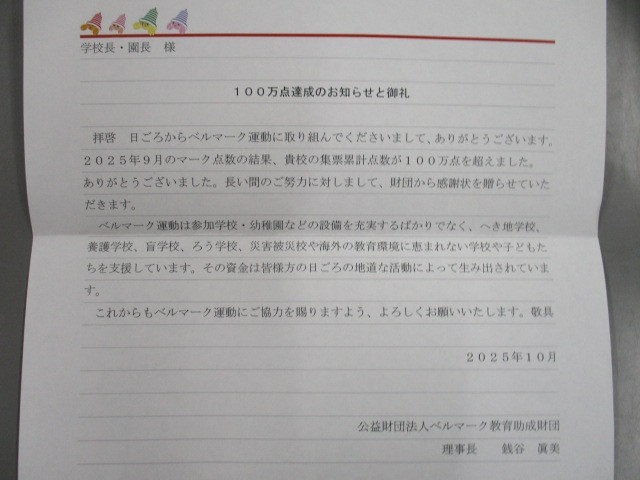 学校長・園長　様
１００万点達成のお知らせと御礼
拝啓　日ごろからベルマーク運動に取り組んでくださいまして、ありがとうございます。
２０２５年９月のマーク点数の結果、貴校の集票累計点数が１００万点を超えました。
ありがとうございました。長い間のご努力に対しまして、財団から感謝状を贈らせていた
だきます。
ベルマーク運動は参加学校・幼稚園などの設備を充実するばかりでなく、へき地学校、
養護学校、盲学校、ろう学校、災害被災校や海外の教育環境に恵まれない学校や子どもた
ちを支援しています。その資金は皆様方の日ごろの地道な活動によって生み出されていま
す。
これからもベルマーク運動にご協力を賜りますよう、よろしくお願いいたします。敬具
２０２５年１０月
公益財団法人ベルマーク教育助成財団
理事長　　銭谷　眞美